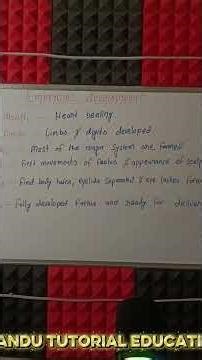 Embryonic development
Heart beating.
Limbs & digits developed
Most of the major system are formed
first movements of foetus & appearance of scalp
find body hairs, eyelids separated & eye lashes form
fully developed foetus and ready for deliver
ANDU TUTORIAL EDUCATI